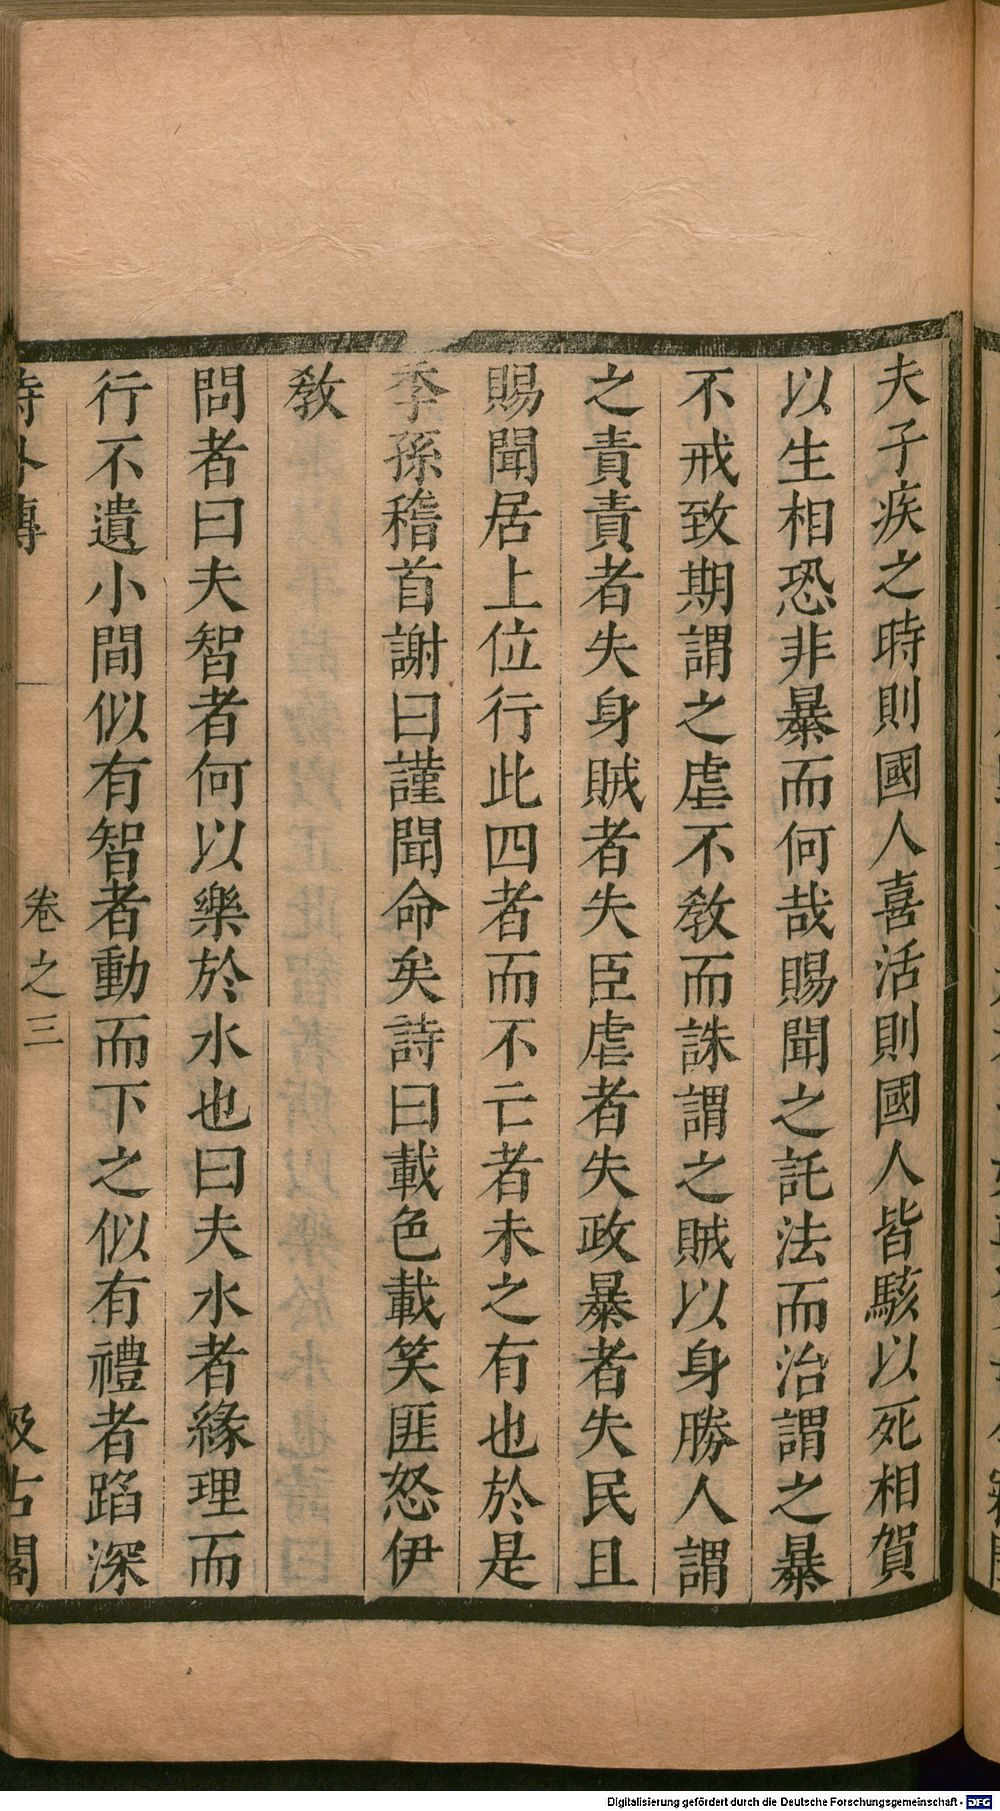 夫子疾之時則國人喜活則國人皆駭以死相賀
以生相恐非暴而何哉賜聞之託法而治謂之暴
不戒致期謂之虐不敎而誅謂之賊以身勝人謂
之責責者失身賊者失臣虐者失政暴者失民且
賜聞居上位行此四者而不亡者未之有也於是
季孫稽首謝曰謹聞命矣詩曰載色載笑匪怒伊
敎
問者曰夫智者何以樂於水也曰夫水者緣理而
行不遺小間似有智者動而下之似有禮者蹈深
詩外傳 卷之三 汲古閣
Digitalisierung gefördert durch die Deutsche Forschungsgemeinschaft - DFG